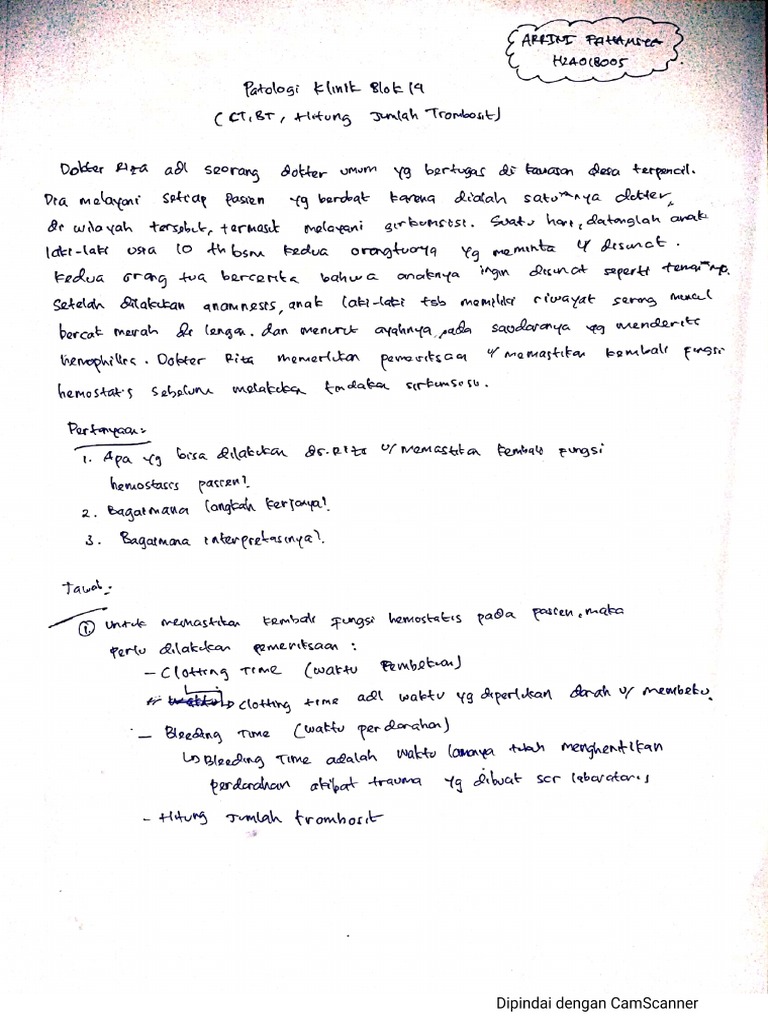 ARRINI FAHAMSYA
H2A018005
Patologi Klinik Blok 19
(CT, BT, Hitung Jumlah Trombosit)
Dokter Rita adl seorang dokter umum yg bertugas di kawasan desa terpencil.
Dia melayani setiap pasien yg berobat karena dialah satu"nya dokter
di wilayah tersebut, termasuk melayani sirkumsisi. Suatu hari, datanglah anak
laki-laki usia 10 th bsm kedua orangtuanya yg meminta u/ disunat.
Kedua orang tua bercerita bahwa anaknya ingin disunat seperti teman"nya.
Setelah dilakukan anamnesis, anak laki-laki tsb memiliki riwayat sering muncul
bercak merah di lengan. dan menurut ayahnya, pada saudaranya yg menderita
hemophilia. Dokter Rita memerlukan pemeriksaan u/ memastikan kembali fungsi
hemostasis sebelum melakukan tindakan sirkumsisi.
Pertanyaan:
1. Apa yg bisa dilakukan dr. Rita u/ memastikan kembali fungsi
hemostasis pasien?
2. Bagaimana langkah kerjanya?
3. Bagaimana interpretasinya?
Jawab:
① Untuk memastikan kembali fungsi hemostasis pada pasien, maka
perlu dilakukan pemeriksaan :
- Clotting Time (waktu pembekuan)
↳ Clotting time adl waktu yg diperlukan darah u/ membeku.
- Bleeding Time (waktu perdarahan)
↳ Bleeding Time adalah waktu lamanya tubuh menghentikan
perdarahan akibat trauma yg dibuat scr laboratoris
- Hitung Jumlah trombosit
Dipindai dengan CamScanner